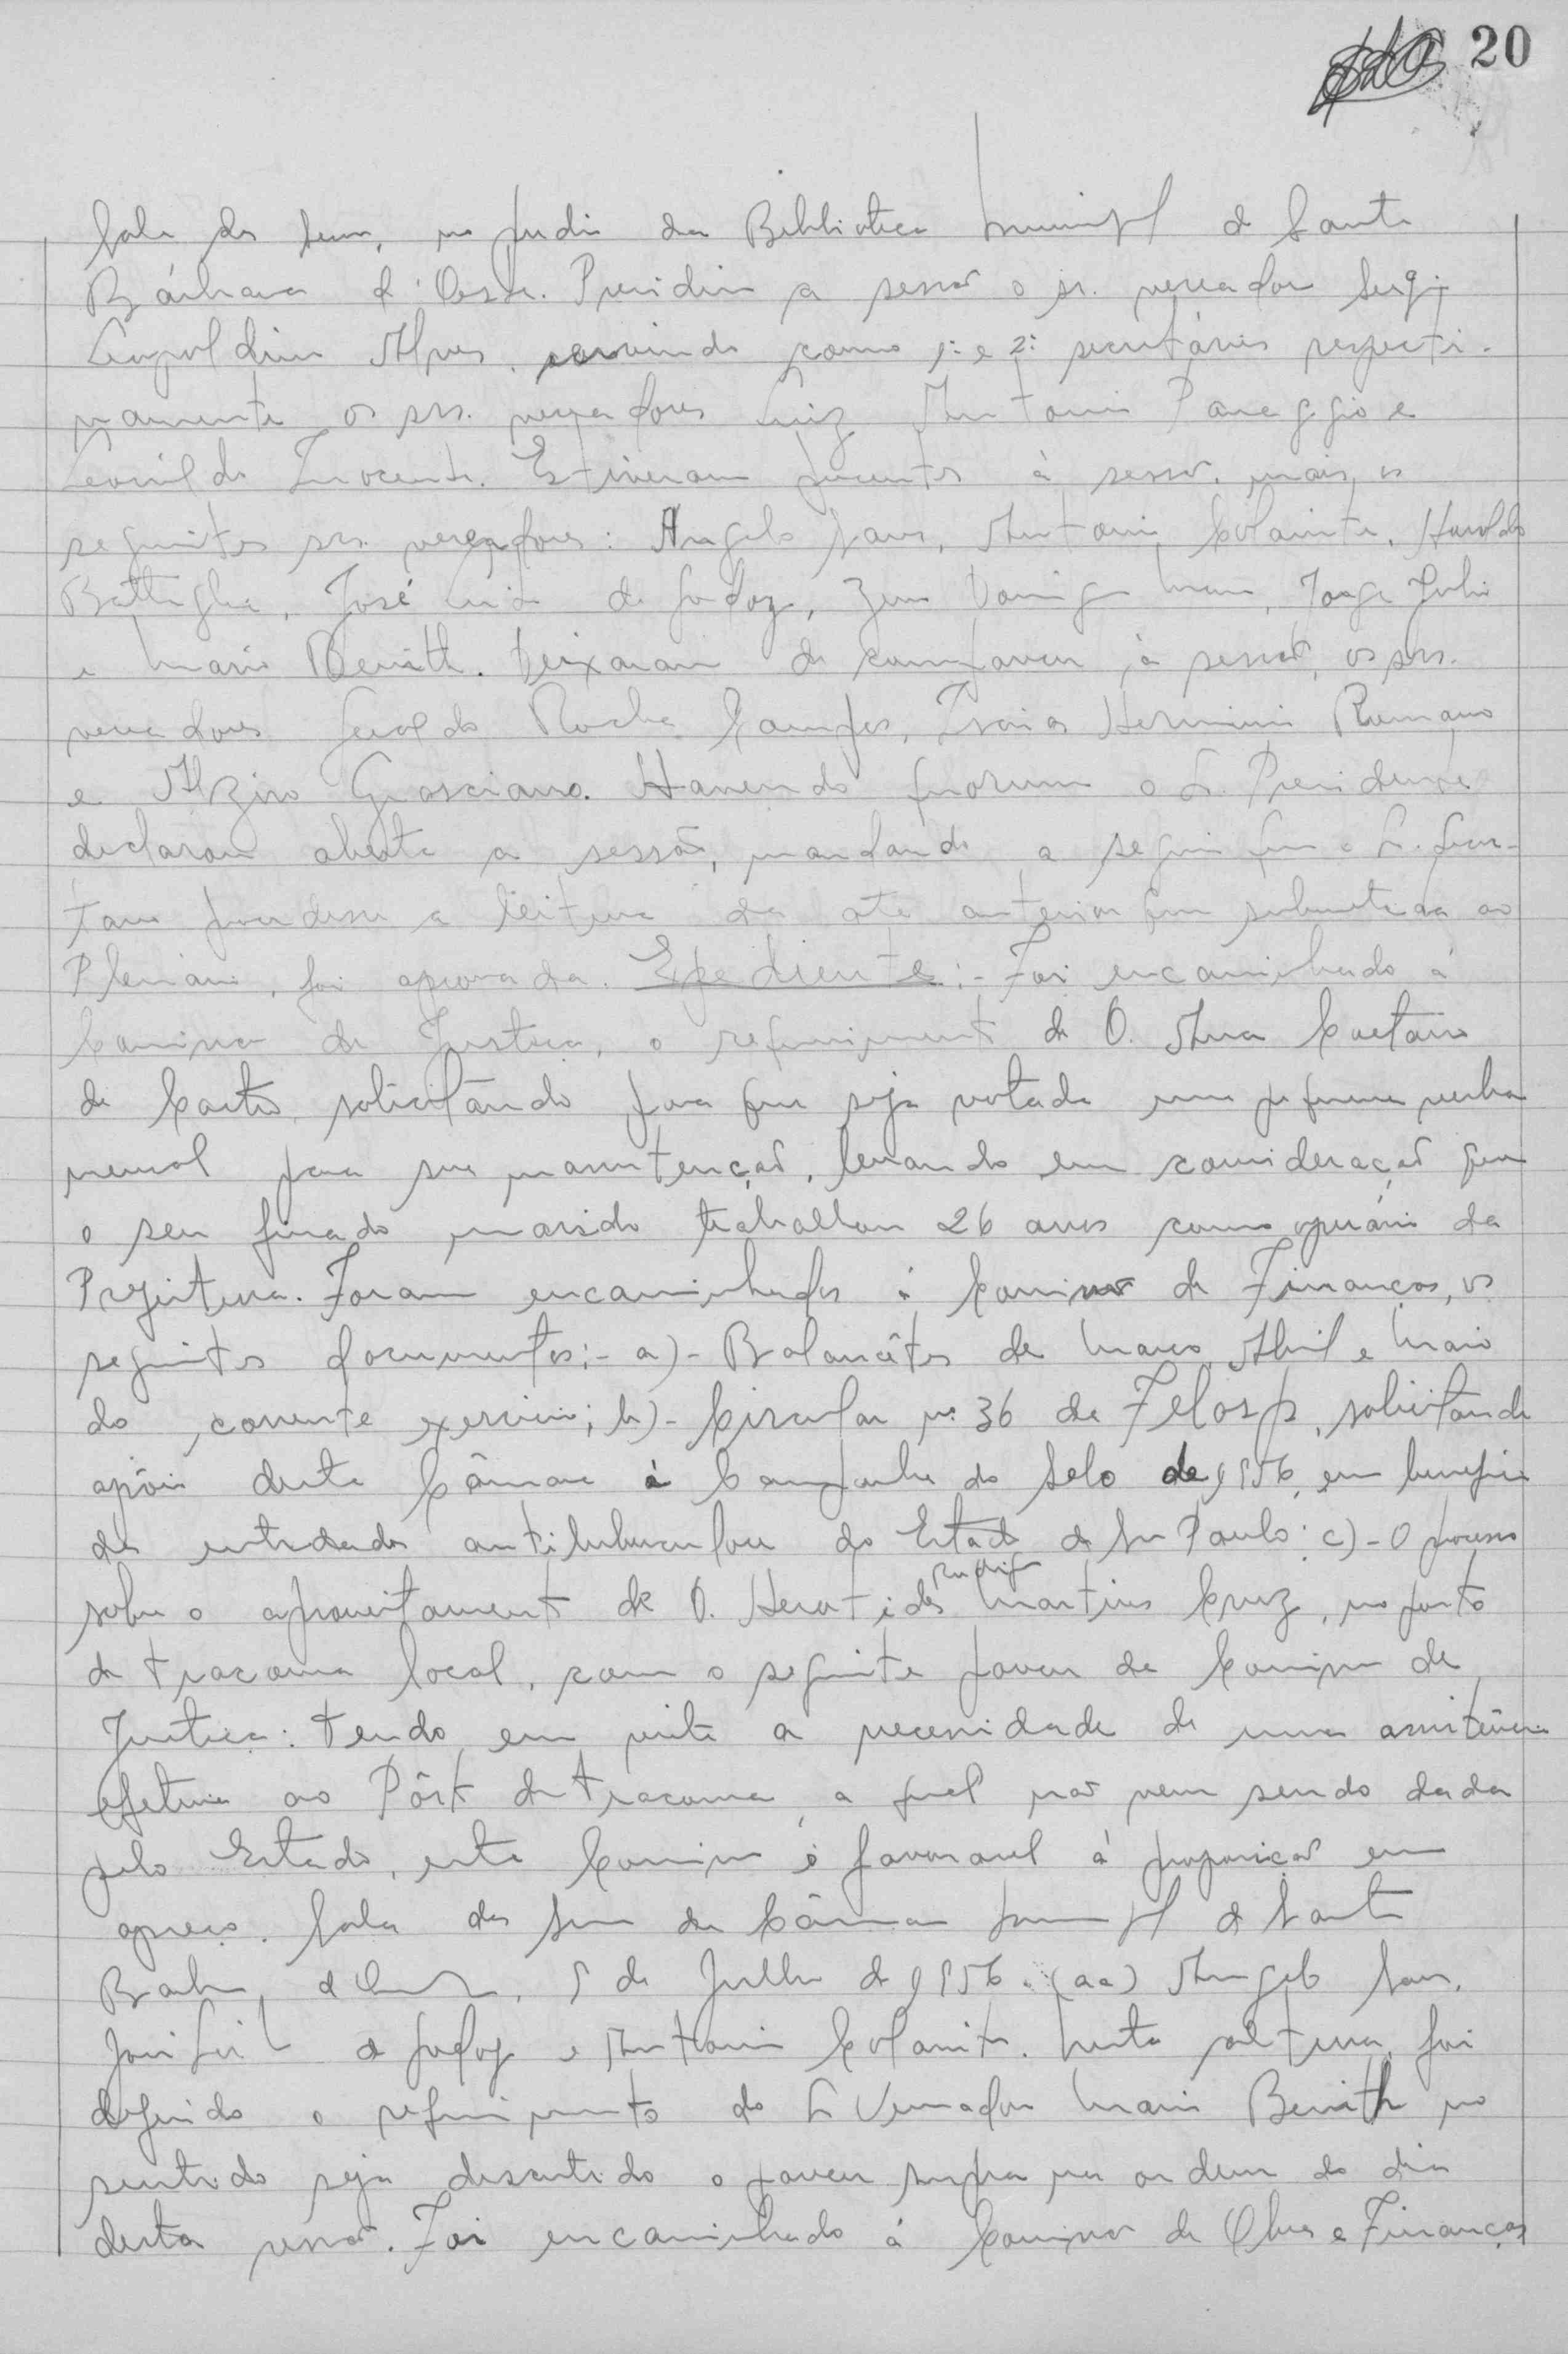 20
Sala das Sessões, no prédio da Biblioteca Municipal de Santa
Bárbara d'Oeste. Presidiu a sessão o sr. vereador Sergio
Leopoldino Alves, servindo como 1º e 2º secretários respecti-
vamente os srs. vereadores Luiz Antonio Panaggio e
Leonildo Inocente. Estiveram presentes à sessão, mais, os
seguintes srs. vereadores: Angelo Sans, Antonio, Haroldo
Battaglia, José de Godoy, Maia, Jorge Julio
e Mario Benith. Deixaram de comparecer à sessão, os srs.
vereadores Geraldo Rocha Campos, Isaias Herminio Romano
e Alziro Grasciano. Havendo quorum o Sr. Presidente
declarou aberta a sessão, mandando a seguir que o Sr. Secre-
tario procedesse a leitura da ata anterior que submetida ao
Plenario, foi aprovada. Expediente:- Foi encaminhado á
Comissão de Justiça, o requerimento de D. Ana Caetano
de Castro solicitando para que seja votada uma pequena verba
mensal para sua manutenção, levando em consideração que
o seu finado marido trabalhou 26 anos como operário da
Prefeitura. Foram encaminhados á Comissão de Finanças, os
seguintes documentos:- a)- Balancêtes de Março, Abril e Maio
do corrente exercicio; b)- Circular nº 36 da Felosp, solicitando
apôio desta Câmara à Campanha do Selo de 1956, em beneficio
das entidades antituberculose do Estado de São Paulo; c)- O processo
sobre o aproveitamento de D. Heratides Rodrigues Martins Cruz, no posto
de tracoma local, com o seguinte parecer da Comissão de
Justiça: Tendo em vista a necessidade de uma assistência
efetiva ao Pôsto de Tracoma, a qual não vem sendo dada
pelo Estado, esta Comissão é favoravel á proposição em
apreço. Sala das Sessões da Câmara Municipal de Santa
Barbara d'Oeste, 5 de Julho de 1956. (aa) Angelo Sans,
José de Godoy e Antonio. Nesta altura, foi
deferido o requerimento do Sr Vereador Mario Benith no
sentido seja discutido o parecer supra na ordem do dia
desta sessão. Foi encaminhado á Comissão de Obras e Finanças